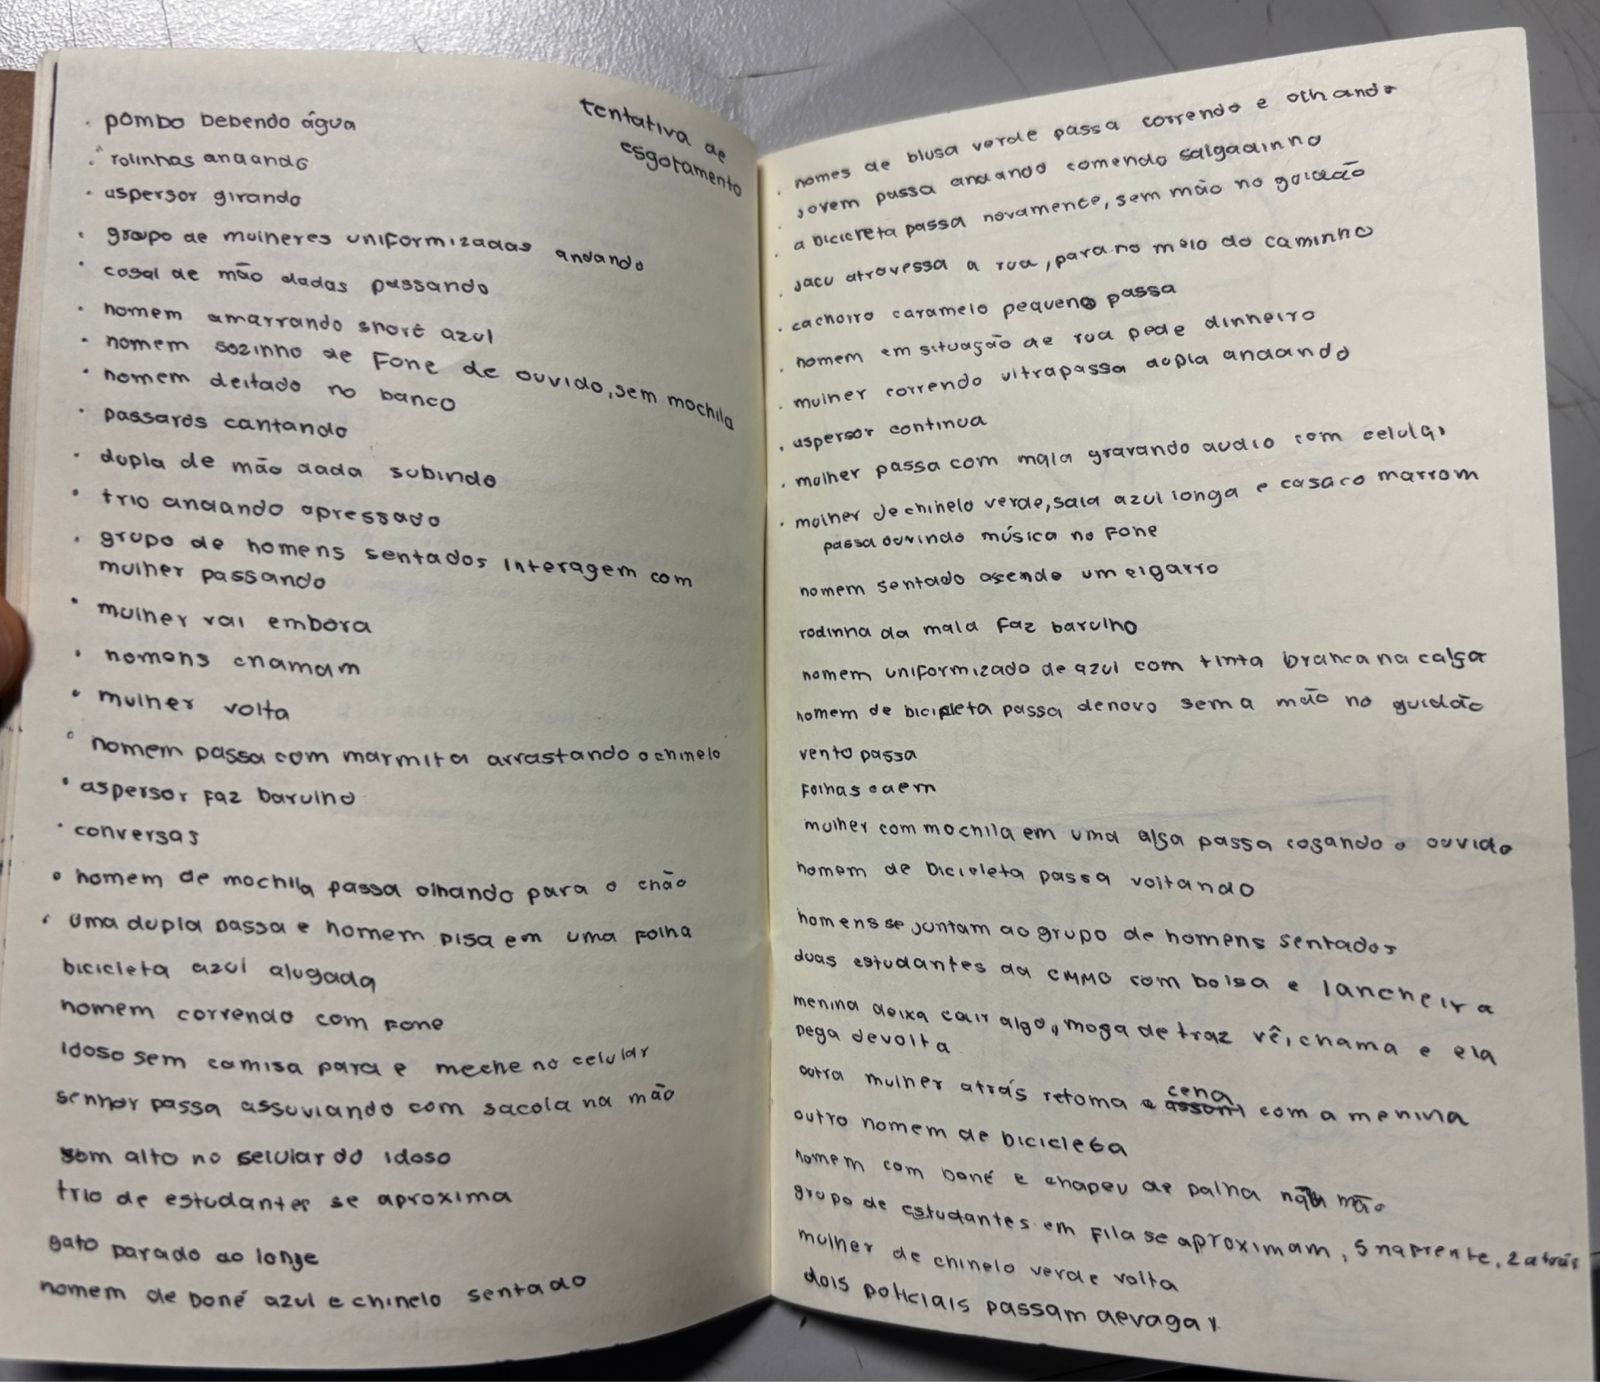 tentativa de
esgotamento
· pombo bebendo água
· rolinhas andando
· aspersor girando
· grupo de mulheres uniformizadas andando
· casal de mão dadas passando
· homem amarrando short azul
· homem sozinho de fone de ouvido, sem mochila
· homem deitado no banco
· passaros cantando
· dupla de mão dada subindo
· trio andando apressado
· grupo de homens sentados interagem com
mulher passando
· mulher vai embora
· homens chamam
· mulher volta
· homem passa com marmita arrastando o chinelo
· aspersor faz barulho
· conversas
· homem de mochila passa olhando para o chão
· uma dupla passa e homem pisa em uma folha
bicicleta azul alugada
homem correndo com fone
idoso sem camisa para e meche no celular
senhor passa assuviando com sacola na mão
som alto no selular do idoso
trio de estudantes se aproxima
gato parado ao longe
homem de boné azul e chinelo sentado
· homes de blusa verde passa correndo e olhando
· jovem passa andando comendo salgadinho
· a bicicreta passa novamente, sem mão no guidão
· jacu atravessa a rua, para no meio do caminho
· cachorro caramelo pequeno passa
· homem em situação de rua pede dinheiro
· mulher correndo ultrapassa dupla andando
· aspersor continua
· mulher passa com mala gravando audio com celular
· mulher de chinelo verde, saia azul longa e casaco marrom
passa ouvindo música no fone
homem sentado acende um cigarro
rodinha da mala faz barulho
homem uniformizado de azul com tinta branca na calça
homem de bicicleta passa denovo sem a mão no guidão
vento passa
folhas caem
mulher com mochila em uma alça passa coçando o ouvido
homem de bicicleta passa voltando
homens se juntam ao grupo de homens sentados
duas estudantes da CMMG com bolsa e lancheira
menina deixa cair algo, moça de traz vê, chama e ela
pega devolta
outra mulher atrás retoma a cena com a menina
outro homem de bicicleta
homem com boné e chapeu de palha na mão
grupo de estudantes em fila se aproximam, 5 na frente, 2 atrás
mulher de chinelo verde volta
dois policiais passam devagar